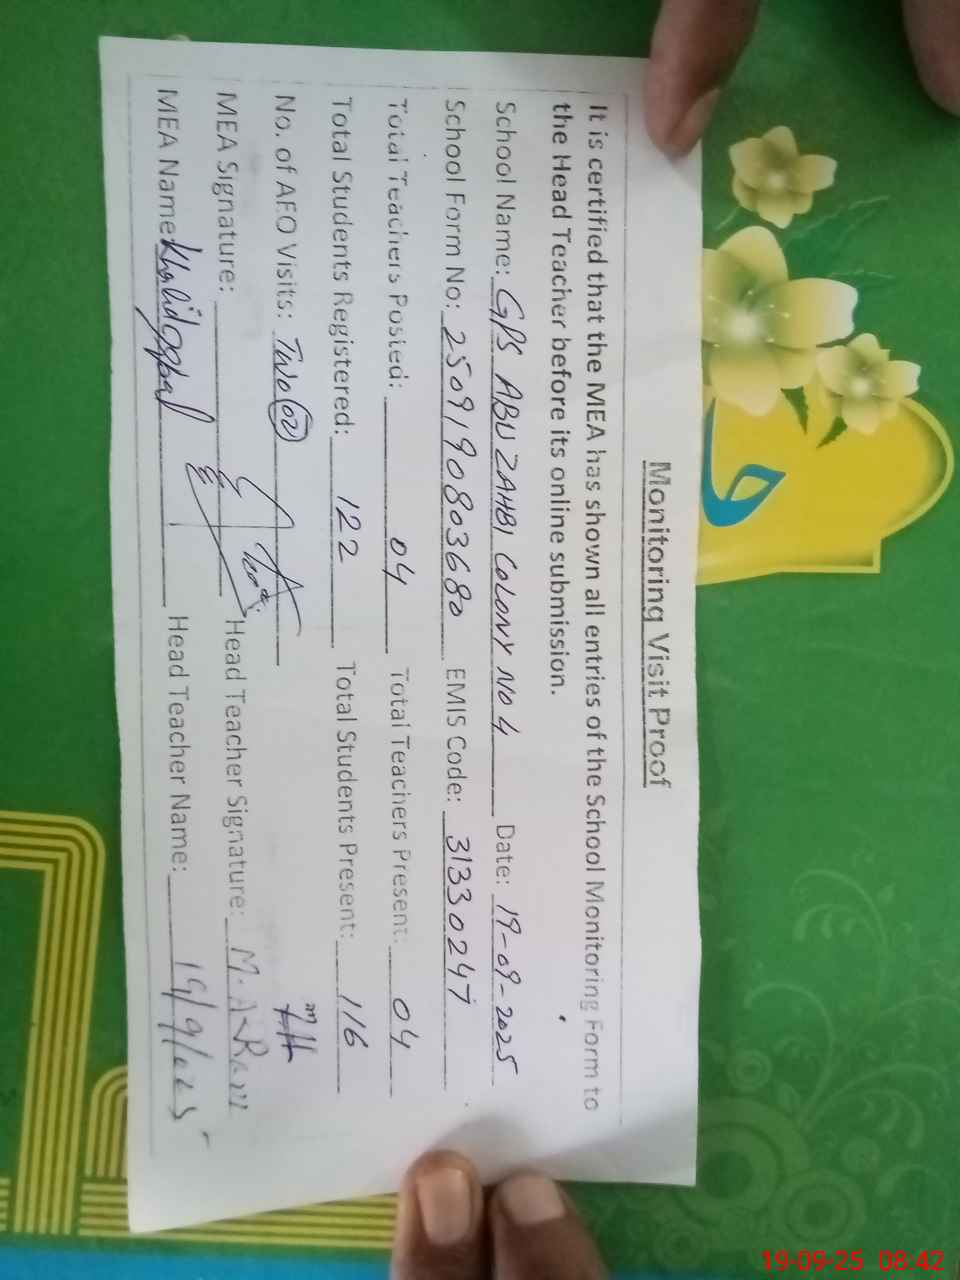 Monitoring Visit Proof
It is certified that the MEA has shown all entries of the School Monitoring Form to
the Head Teacher before its online submission.
School Name: GPS ABU ZAHBI COLONY NO 4 Date: 19-09-2025
School Form No: 2509190803680 EMIS Code: 31330247
Total Teachers Posted: 04 Total Teachers Present: 04
Total Students Registered: 122 Total Students Present: 116
No. of AEO Visits: Two 02
MEA Signature: Head Teacher Signature:
MEA Name: Khalid Iqbal Head Teacher Name:
19-09-25 08:42